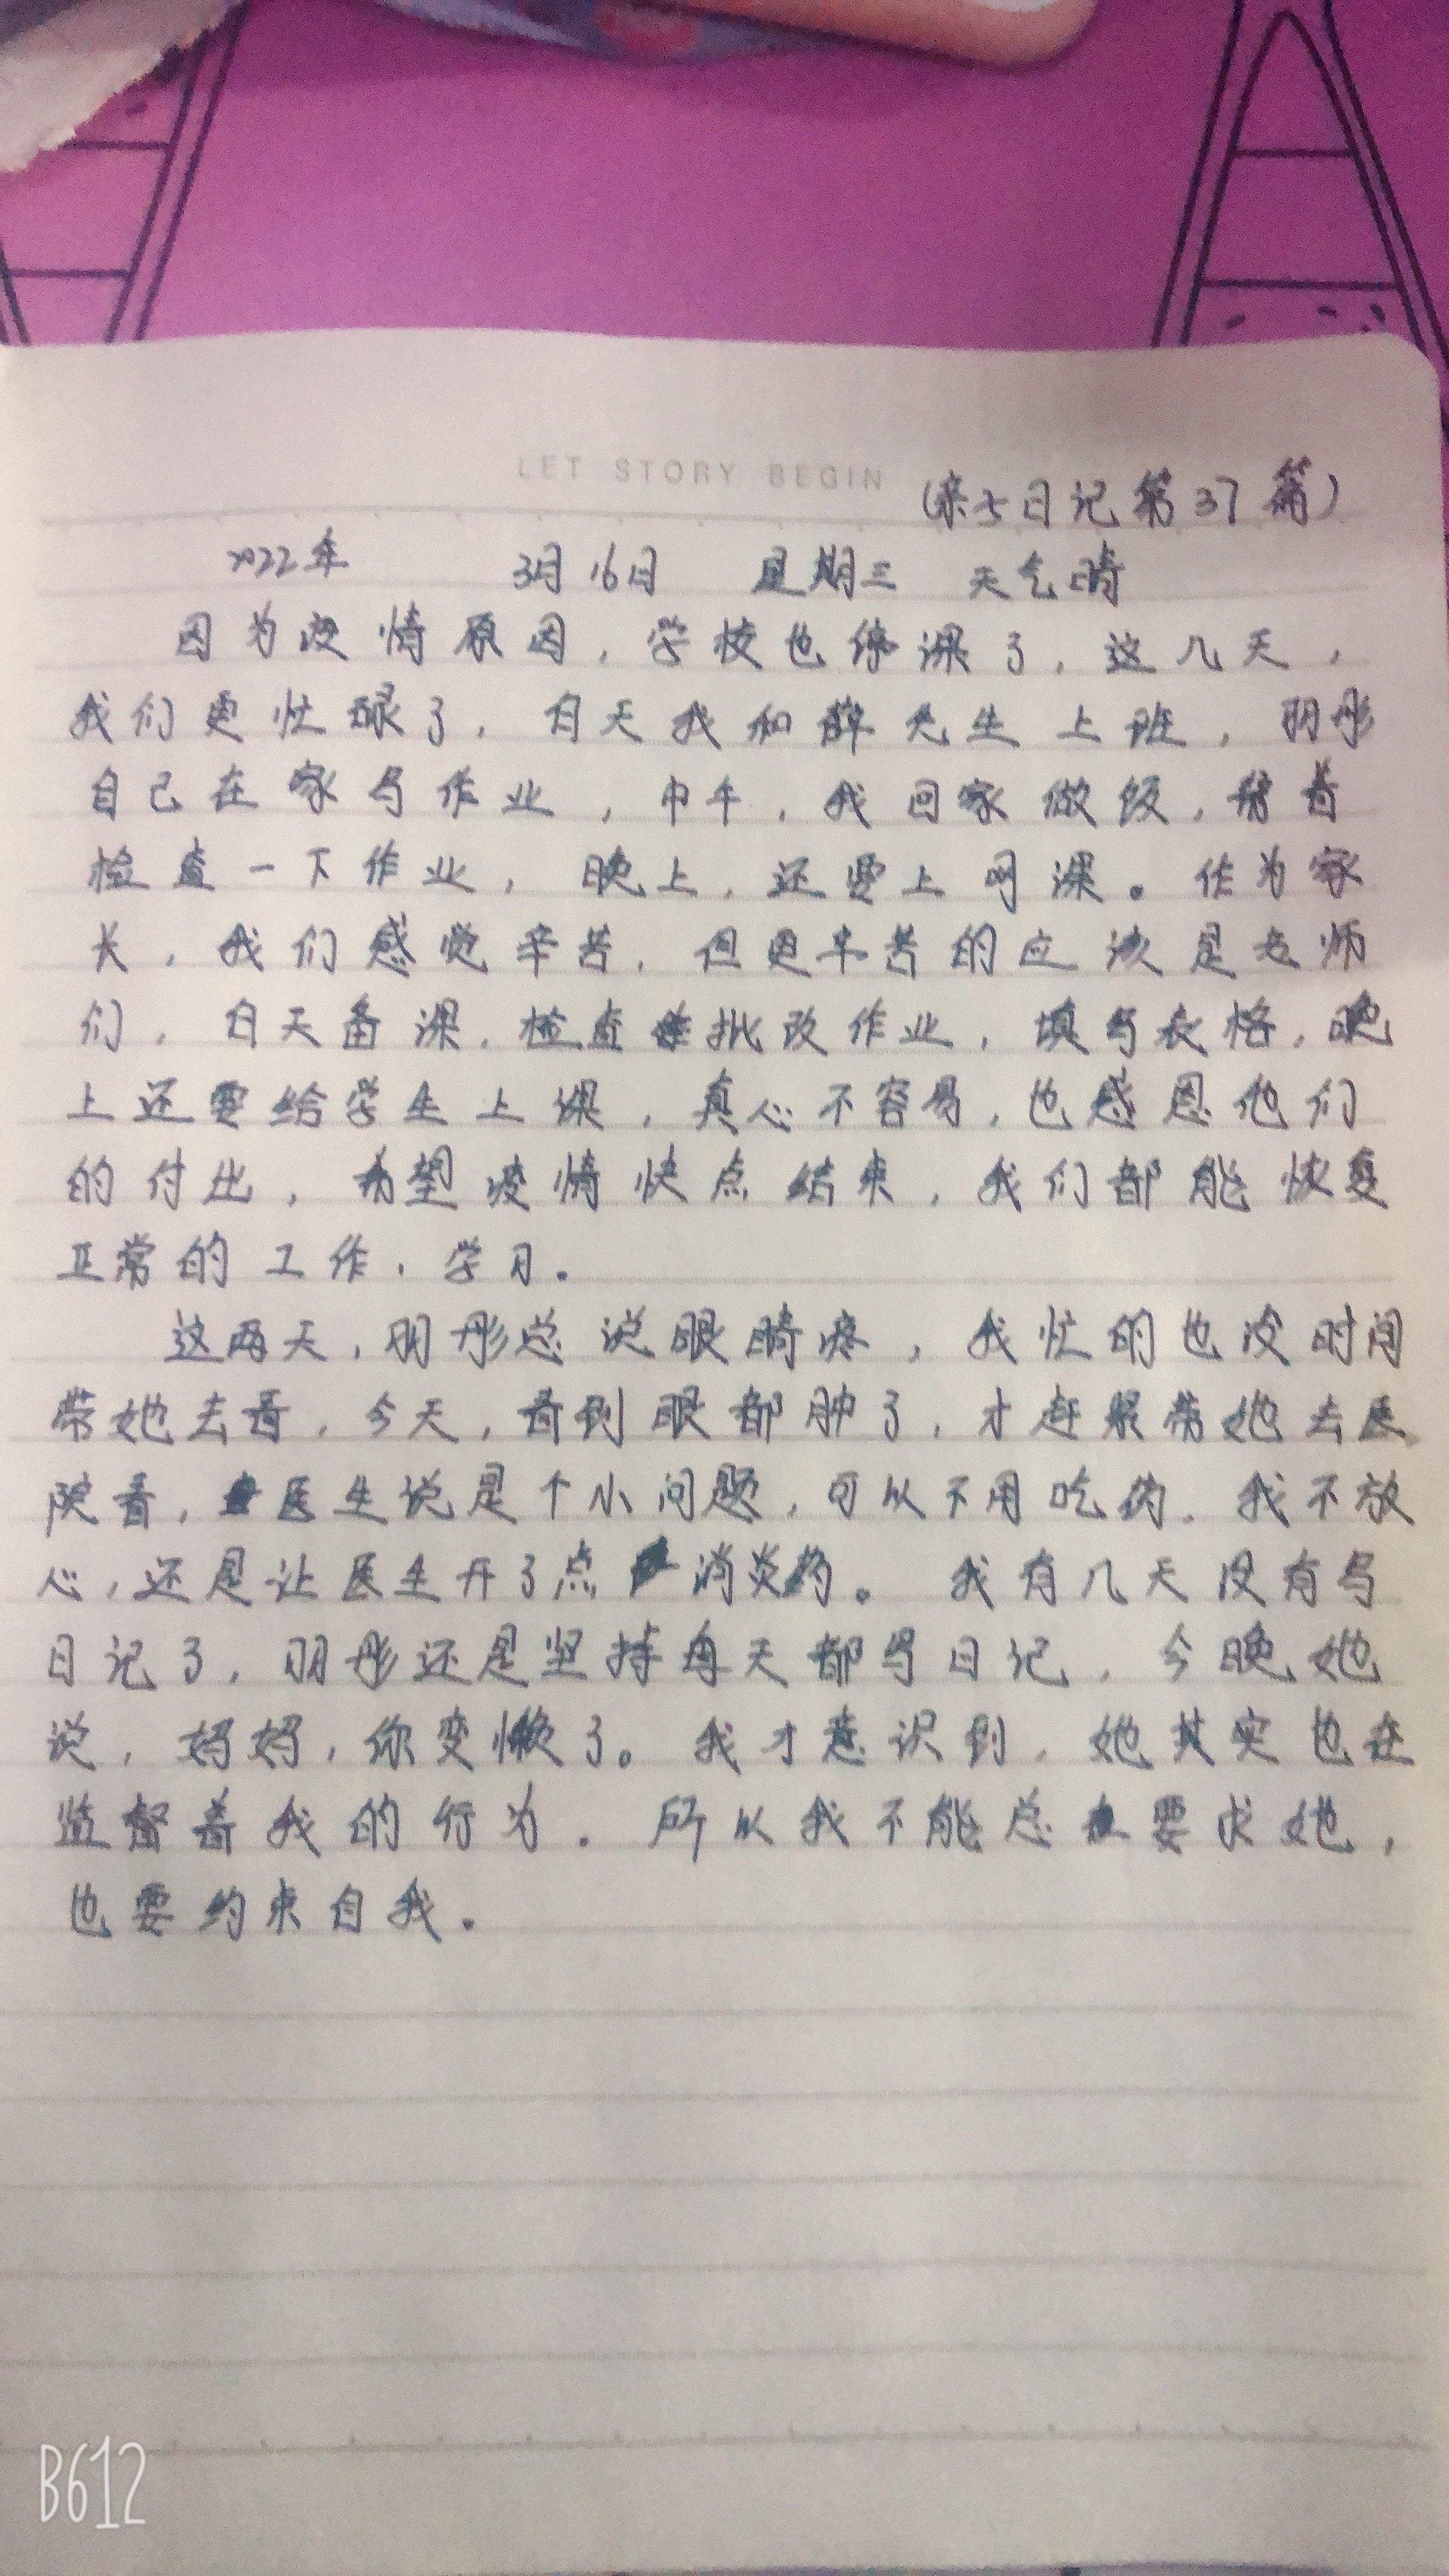 LET STORY BEGIN
(亲子日记第37篇)
2022年 3月16日 星期三 天气晴
因为疫情原因,学校也停课了,这几天,
我们更忙碌了,白天我和薛先生上班,羽彤
自己在家写作业,中午,我回家做饭,帮着
检查一下作业,晚上,还要上网课。作为家
长,我们感觉辛苦,但更辛苦的应该是老师
们,白天备课,检查批改作业,填写表格,晚
上还要给学生上课,真心不容易,也感恩他们
的付出,希望疫情快点结束,我们都能恢复
正常的工作、学习。
这两天,羽彤总说眼睛疼,我忙的也没时间
带她去看,今天,看到眼都肿了,才赶紧带她去医
院看,医生说是个小问题,可以不用吃药,我不放
心,还是让医生开了点消炎药。我有几天没有写
日记了,羽彤还是坚持每天都写日记,今晚她
说,妈妈,你变懒了。我才意识到,她其实也在
监督着我的行为。所以我不能总要求她,
也要约束自我。
B612